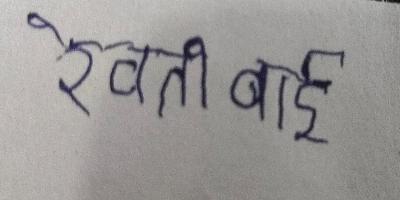 रेवती बाई